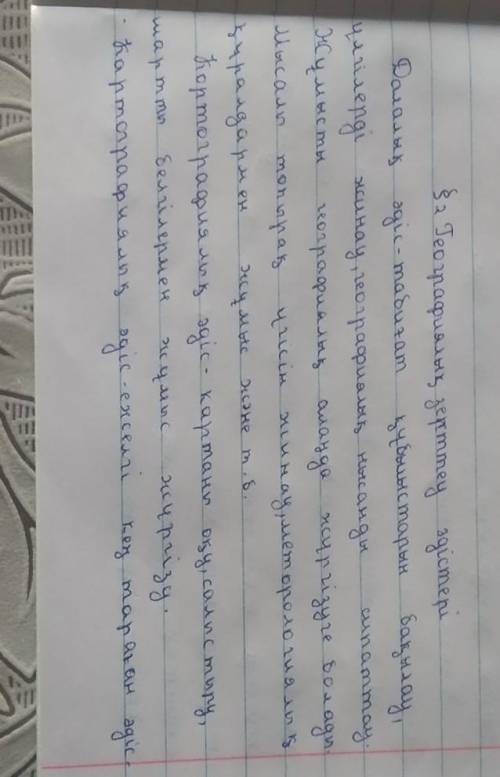 §2 Географиялық зерттеу әдістері
Далалық әдіс-табиғат құбылыстарын бақылау,
үлгілерді жинау, географиялық нысанды сипаттау.
Жұмысты географиялық алаңда жүргізуге болады.
Мысалы топырақ үгісін жинау, меторологиялық
құралдармен жұмыс және т.б.
Картографиялық әдіс- картаны оқу, салыстыру,
шартты белгілермен жұмыс жүргізу.
· Картографиялық әдіс-ежелгі кең тараған әдіс.